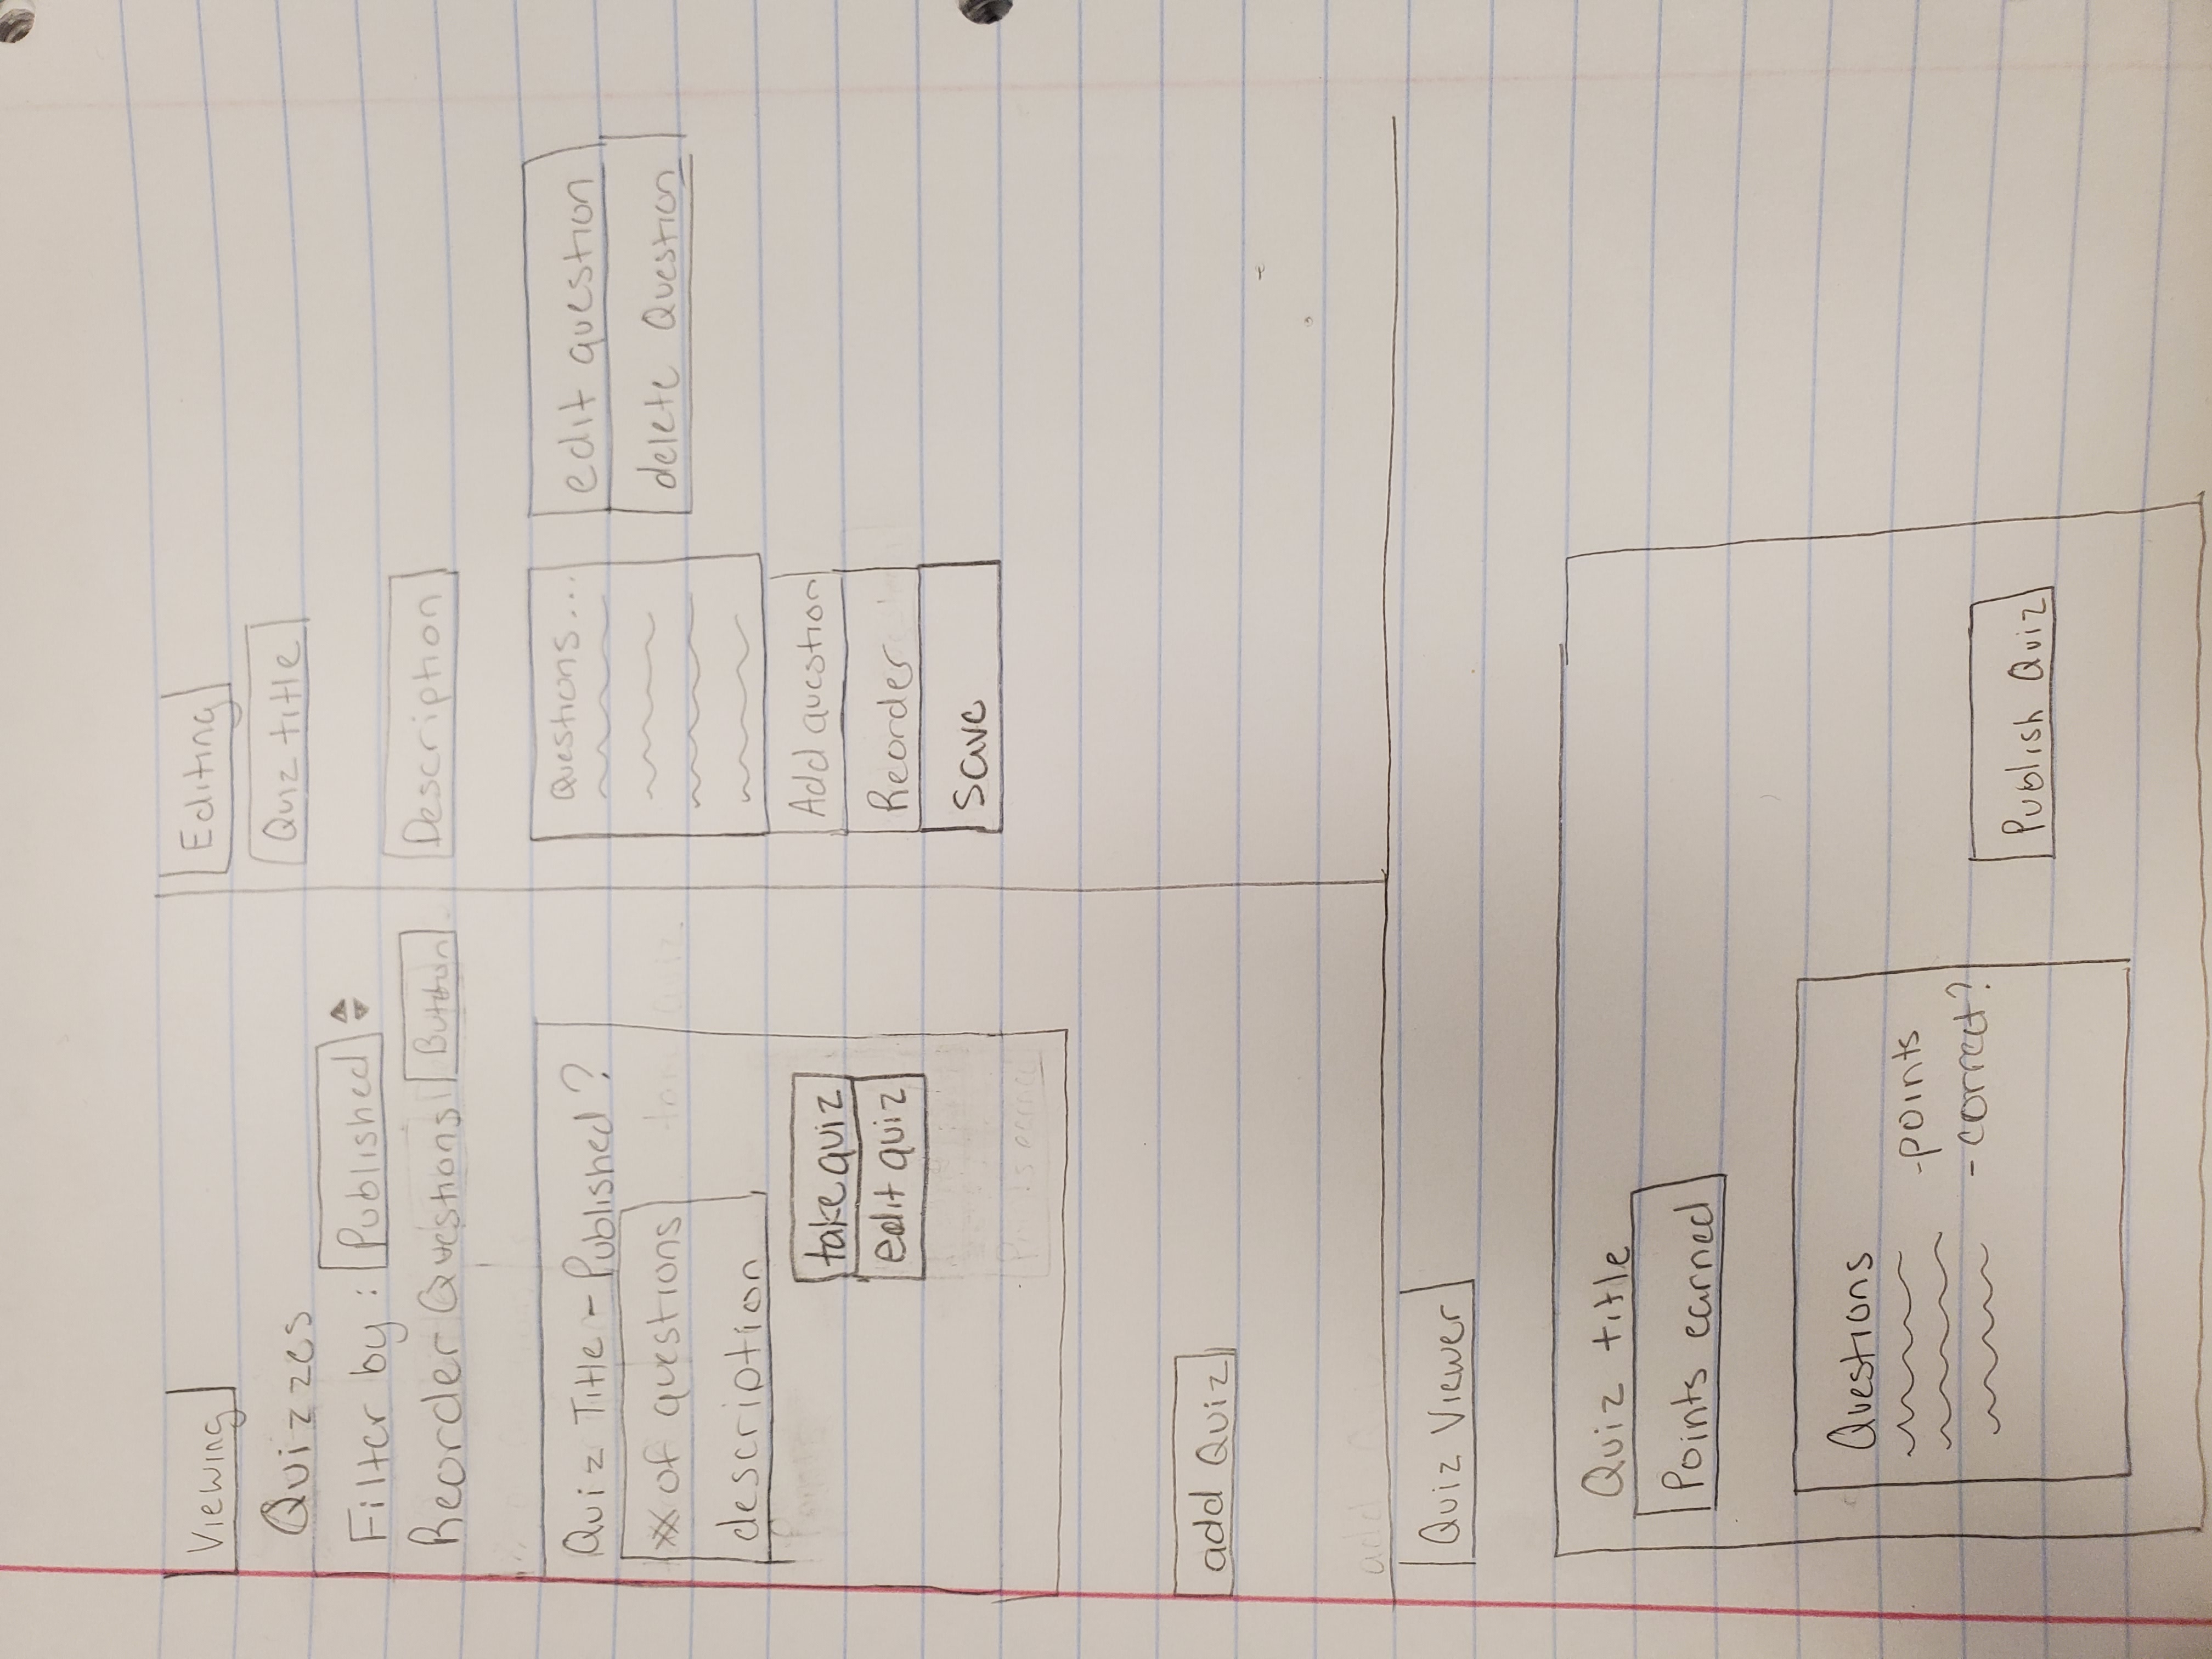 Viewing
Quizzes
Filter by: Published
Reorder Questions Button
Quiz Title - Published?
# of questions
description
take quiz
edit quiz
Points earned
add Quiz
add Q
Editing
Quiz title
Description
Questions...
edit question
delete Question
Add question
Reorder
Save
Quiz Viewer
Quiz title
Points earned
Questions
- points
- correct?
Publish Quiz